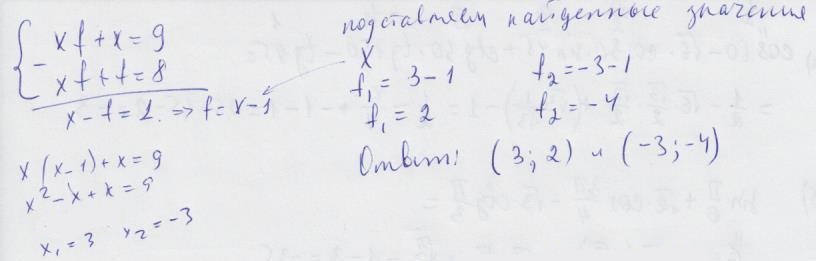 xf + x = 9
xf + f = 8
x - f = 1. => f = x - 1
x(x-1) + x = 9
x² - x + x = 9
x₁ = 3 x₂ = -3
подставляем найденные значения
x
f₁ = 3 - 1 f₂ = -3 - 1
f₁ = 2 f₂ = -4
Ответ: (3; 2) и (-3; -4)